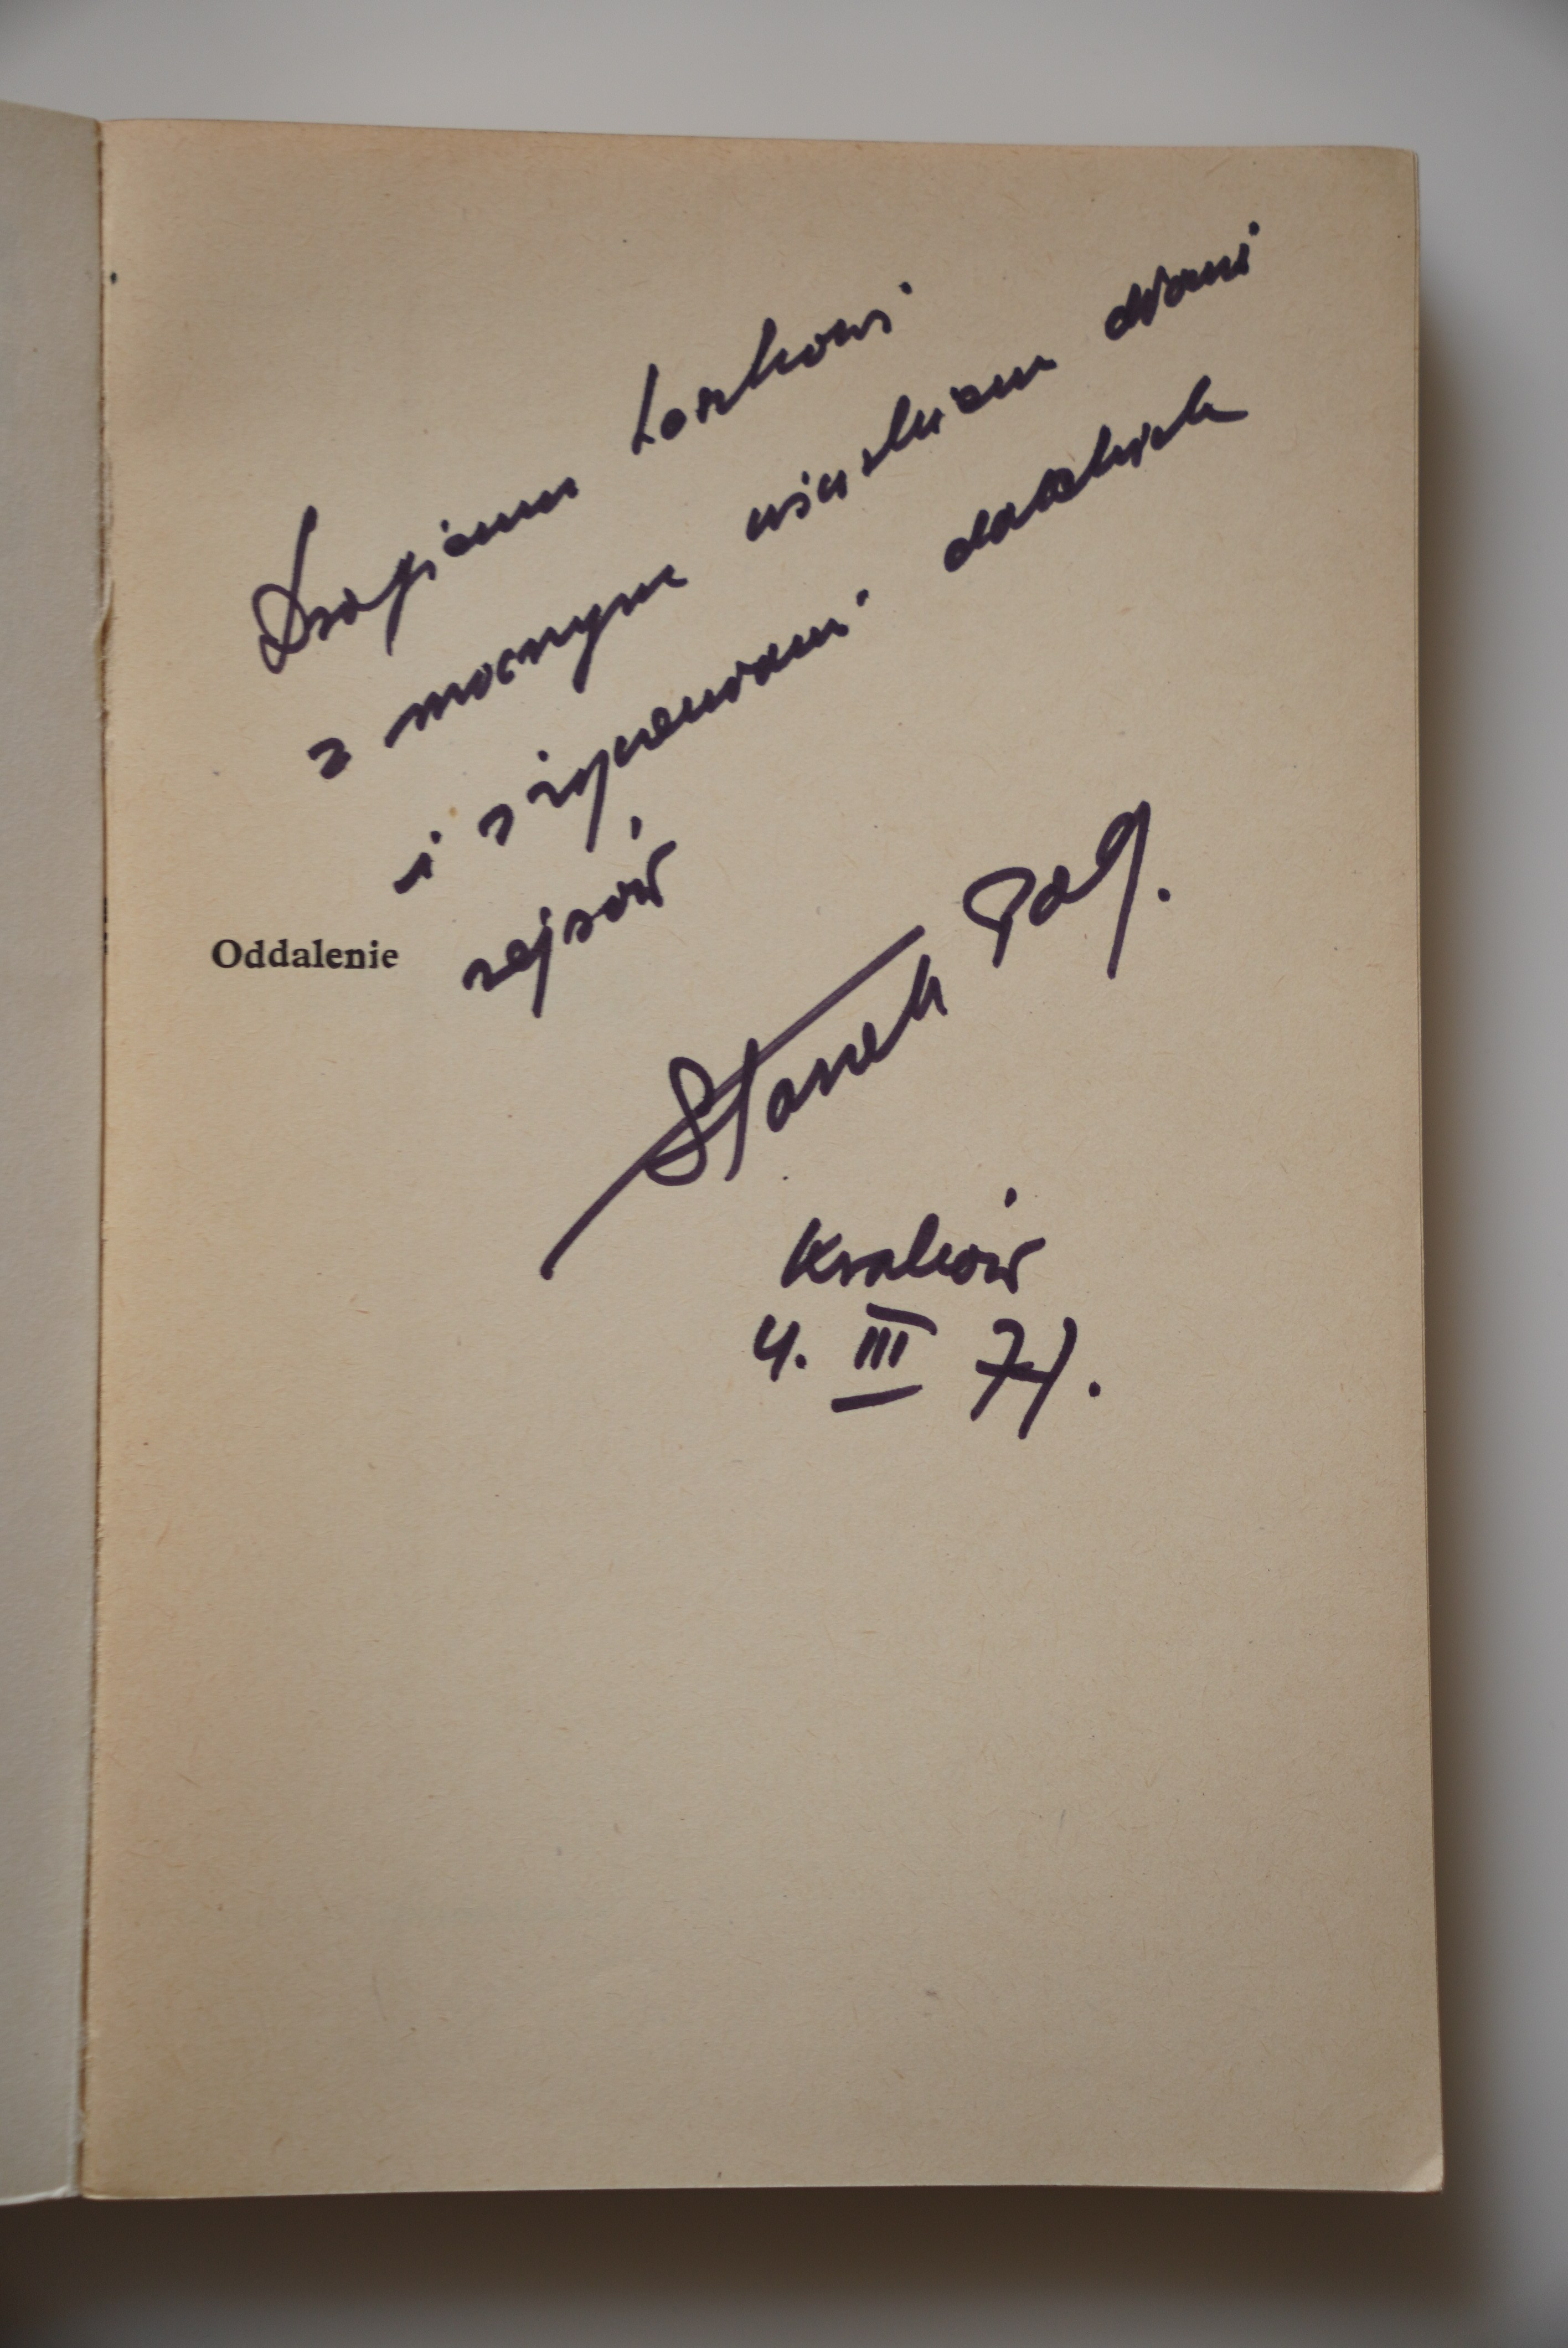 Drogiemu Leszkowi
z mocnym uściskiem dłoni
i z życzeniami dalekich
rejsów
Oddalenie
Stanek Pag.
Kraków
4. III 74.